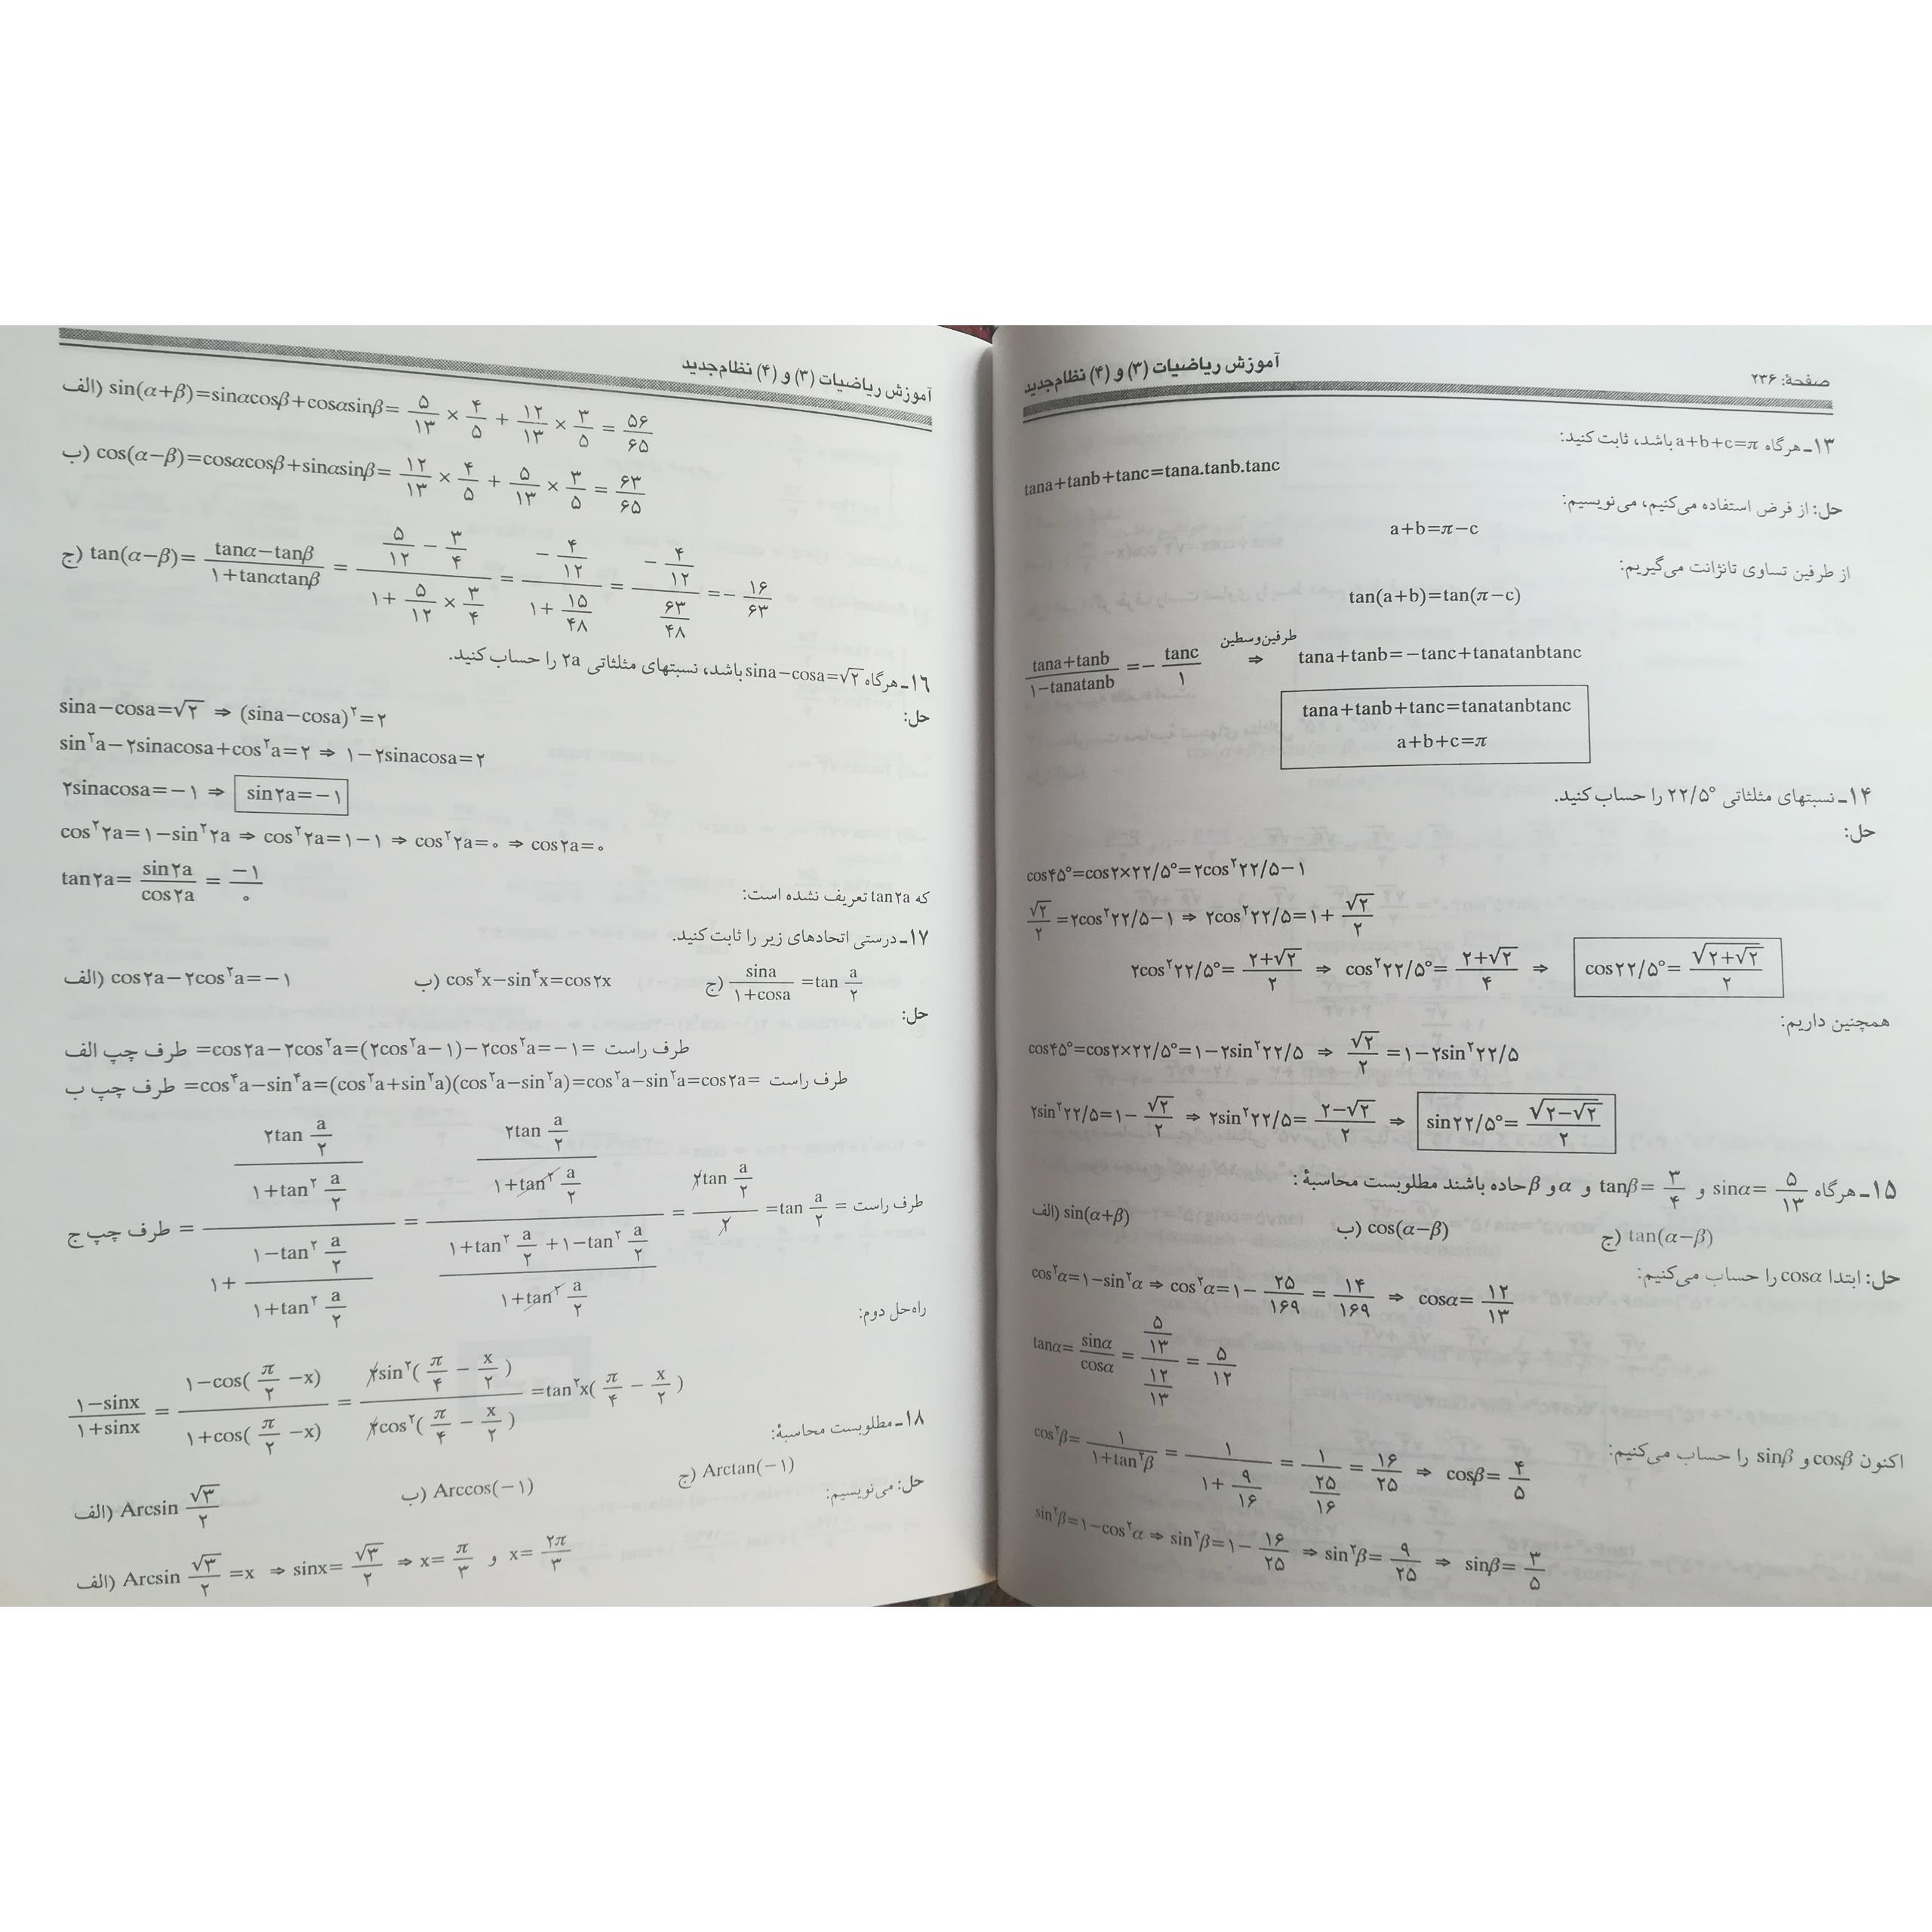 صفحهٔ: ۲۳۶
آموزش ریاضیات (۳) و (۴) نظام‌جدید
۱۳ـ هرگاه a+b+c=π باشد، ثابت کنید:
tana+tanb+tanc=tana.tanb.tanc
حل: از فرض استفاده می‌کنیم، می‌نویسیم:
a+b=π−c
از طرفین تساوی تانژانت می‌گیریم:
tan(a+b)=tan(π−c)
(tana+tanb)/(۱−tanatanb) =− tanc/۱ طرفین‌وسطین ⇒ tana+tanb=−tanc+tanatanbtanc
tana+tanb+tanc=tanatanbtanc
a+b+c=π
۱۴ـ نسبتهای مثلثاتی ۲۲/۵° را حساب کنید.
حل:
cos۴۵°=cos۲×۲۲/۵°=۲cos²۲۲/۵−۱
√۲/۲ =۲cos²۲۲/۵−۱ ⇒ ۲cos²۲۲/۵=۱+ √۲/۲
۲cos²۲۲/۵°= (۲+√۲)/۲ ⇒ cos²۲۲/۵°= (۲+√۲)/۴ ⇒ cos۲۲/۵°= √(۲+√۲)/۲
همچنین داریم:
cos۴۵°=cos۲×۲۲/۵°=۱−۲sin²۲۲/۵ ⇒ √۲/۲ =۱−۲sin²۲۲/۵
۲sin²۲۲/۵=۱− √۲/۲ ⇒ ۲sin²۲۲/۵= (۲−√۲)/۲ ⇒ sin۲۲/۵°= √(۲−√۲)/۲
۱۵ـ هرگاه sinα= ۵/۱۳ و tanβ= ۳/۴ و α و β حاده باشند مطلوبست محاسبهٔ :
الف) sin(α+β) ب) cos(α−β) ج) tan(α−β)
حل: ابتدا cosα را حساب می‌کنیم:
cos²α=۱−sin²α ⇒ cos²α=۱− ۲۵/۱۶۹ = ۱۴/۱۶۹ ⇒ cosα= ۱۲/۱۳
tanα= sinα/cosα = (۵/۱۳)/(۱۲/۱۳) = ۵/۱۲
اکنون cosβ و sinβ را حساب می‌کنیم:
cos²β= ۱/(۱+tan²β) = ۱/(۱+ ۹/۱۶) = ۱/(۲۵/۱۶) = ۱۶/۲۵ ⇒ cosβ= ۴/۵
sin²β=۱−cos²α ⇒ sin²β=۱− ۱۶/۲۵ ⇒ sin²β= ۹/۲۵ ⇒ sinβ= ۳/۵
آموزش ریاضیات (۳) و (۴) نظام‌جدید
الف) sin(α+β)=sinαcosβ+cosαsinβ= ۵/۱۳ × ۴/۵ + ۱۲/۱۳ × ۳/۵ = ۵۶/۶۵
ب) cos(α−β)=cosαcosβ+sinαsinβ= ۱۲/۱۳ × ۴/۵ + ۵/۱۳ × ۳/۵ = ۶۳/۶۵
ج) tan(α−β)= (tanα−tanβ)/(۱+tanαtanβ) = (۵/۱۲ − ۳/۴)/(۱+ ۵/۱۲ × ۳/۴) = (− ۴/۱۲)/(۱+ ۱۵/۴۸) = (− ۴/۱۲)/(۶۳/۴۸) =− ۱۶/۶۳
۱۶ـ هرگاه sina−cosa=√۲ باشد، نسبتهای مثلثاتی ۲a را حساب کنید.
حل:
sina−cosa=√۲ ⇒ (sina−cosa)²=۲
sin²a−۲sinacosa+cos²a=۲ ⇒ ۱−۲sinacosa=۲
۲sinacosa=−۱ ⇒ sin۲a=−۱
cos²۲a=۱−sin²۲a ⇒ cos²۲a=۱−۱ ⇒ cos²۲a=۰ ⇒ cos۲a=۰
tan۲a= sin۲a/cos۲a = −۱/۰
که tan۲a تعریف نشده است:
۱۷ـ درستی اتحادهای زیر را ثابت کنید.
الف) cos۲a−۲cos²a=−۱ ب) cos⁴x−sin⁴x=cos۲x ج) sina/(۱+cosa) =tan a/۲
حل:
طرف چپ الف =cos۲a−۲cos²a=(۲cos²a−۱)−۲cos²a=−۱= طرف راست
طرف چپ ب =cos⁴a−sin⁴a=(cos²a+sin²a)(cos²a−sin²a)=cos²a−sin²a=cos۲a= طرف راست
طرف چپ ج = (۲tan a/۲ / (۱+tan² a/۲)) / (۱+ (۱−tan² a/۲)/(۱+tan² a/۲)) = (۲tan a/۲ / (۱+tan² a/۲)) / ((۱+tan² a/۲ +۱−tan² a/۲)/(۱+tan² a/۲)) = (۲tan a/۲)/۲ =tan a/۲ = طرف راست
راه‌حل دوم:
(۱−sinx)/(۱+sinx) = (۱−cos(π/۲ −x))/(۱+cos(π/۲ −x)) = (۲sin²(π/۴ − x/۲))/(۲cos²(π/۴ − x/۲)) =tan²x(π/۴ − x/۲)
۱۸ـ مطلوبست محاسبهٔ:
الف) Arcsin √۳/۲ ب) Arccos(−۱) ج) Arctan(−۱)
حل: می‌نویسیم:
الف) Arcsin √۳/۲ =x ⇒ sinx= √۳/۲ ⇒ x= π/۳ و x= ۲π/۳